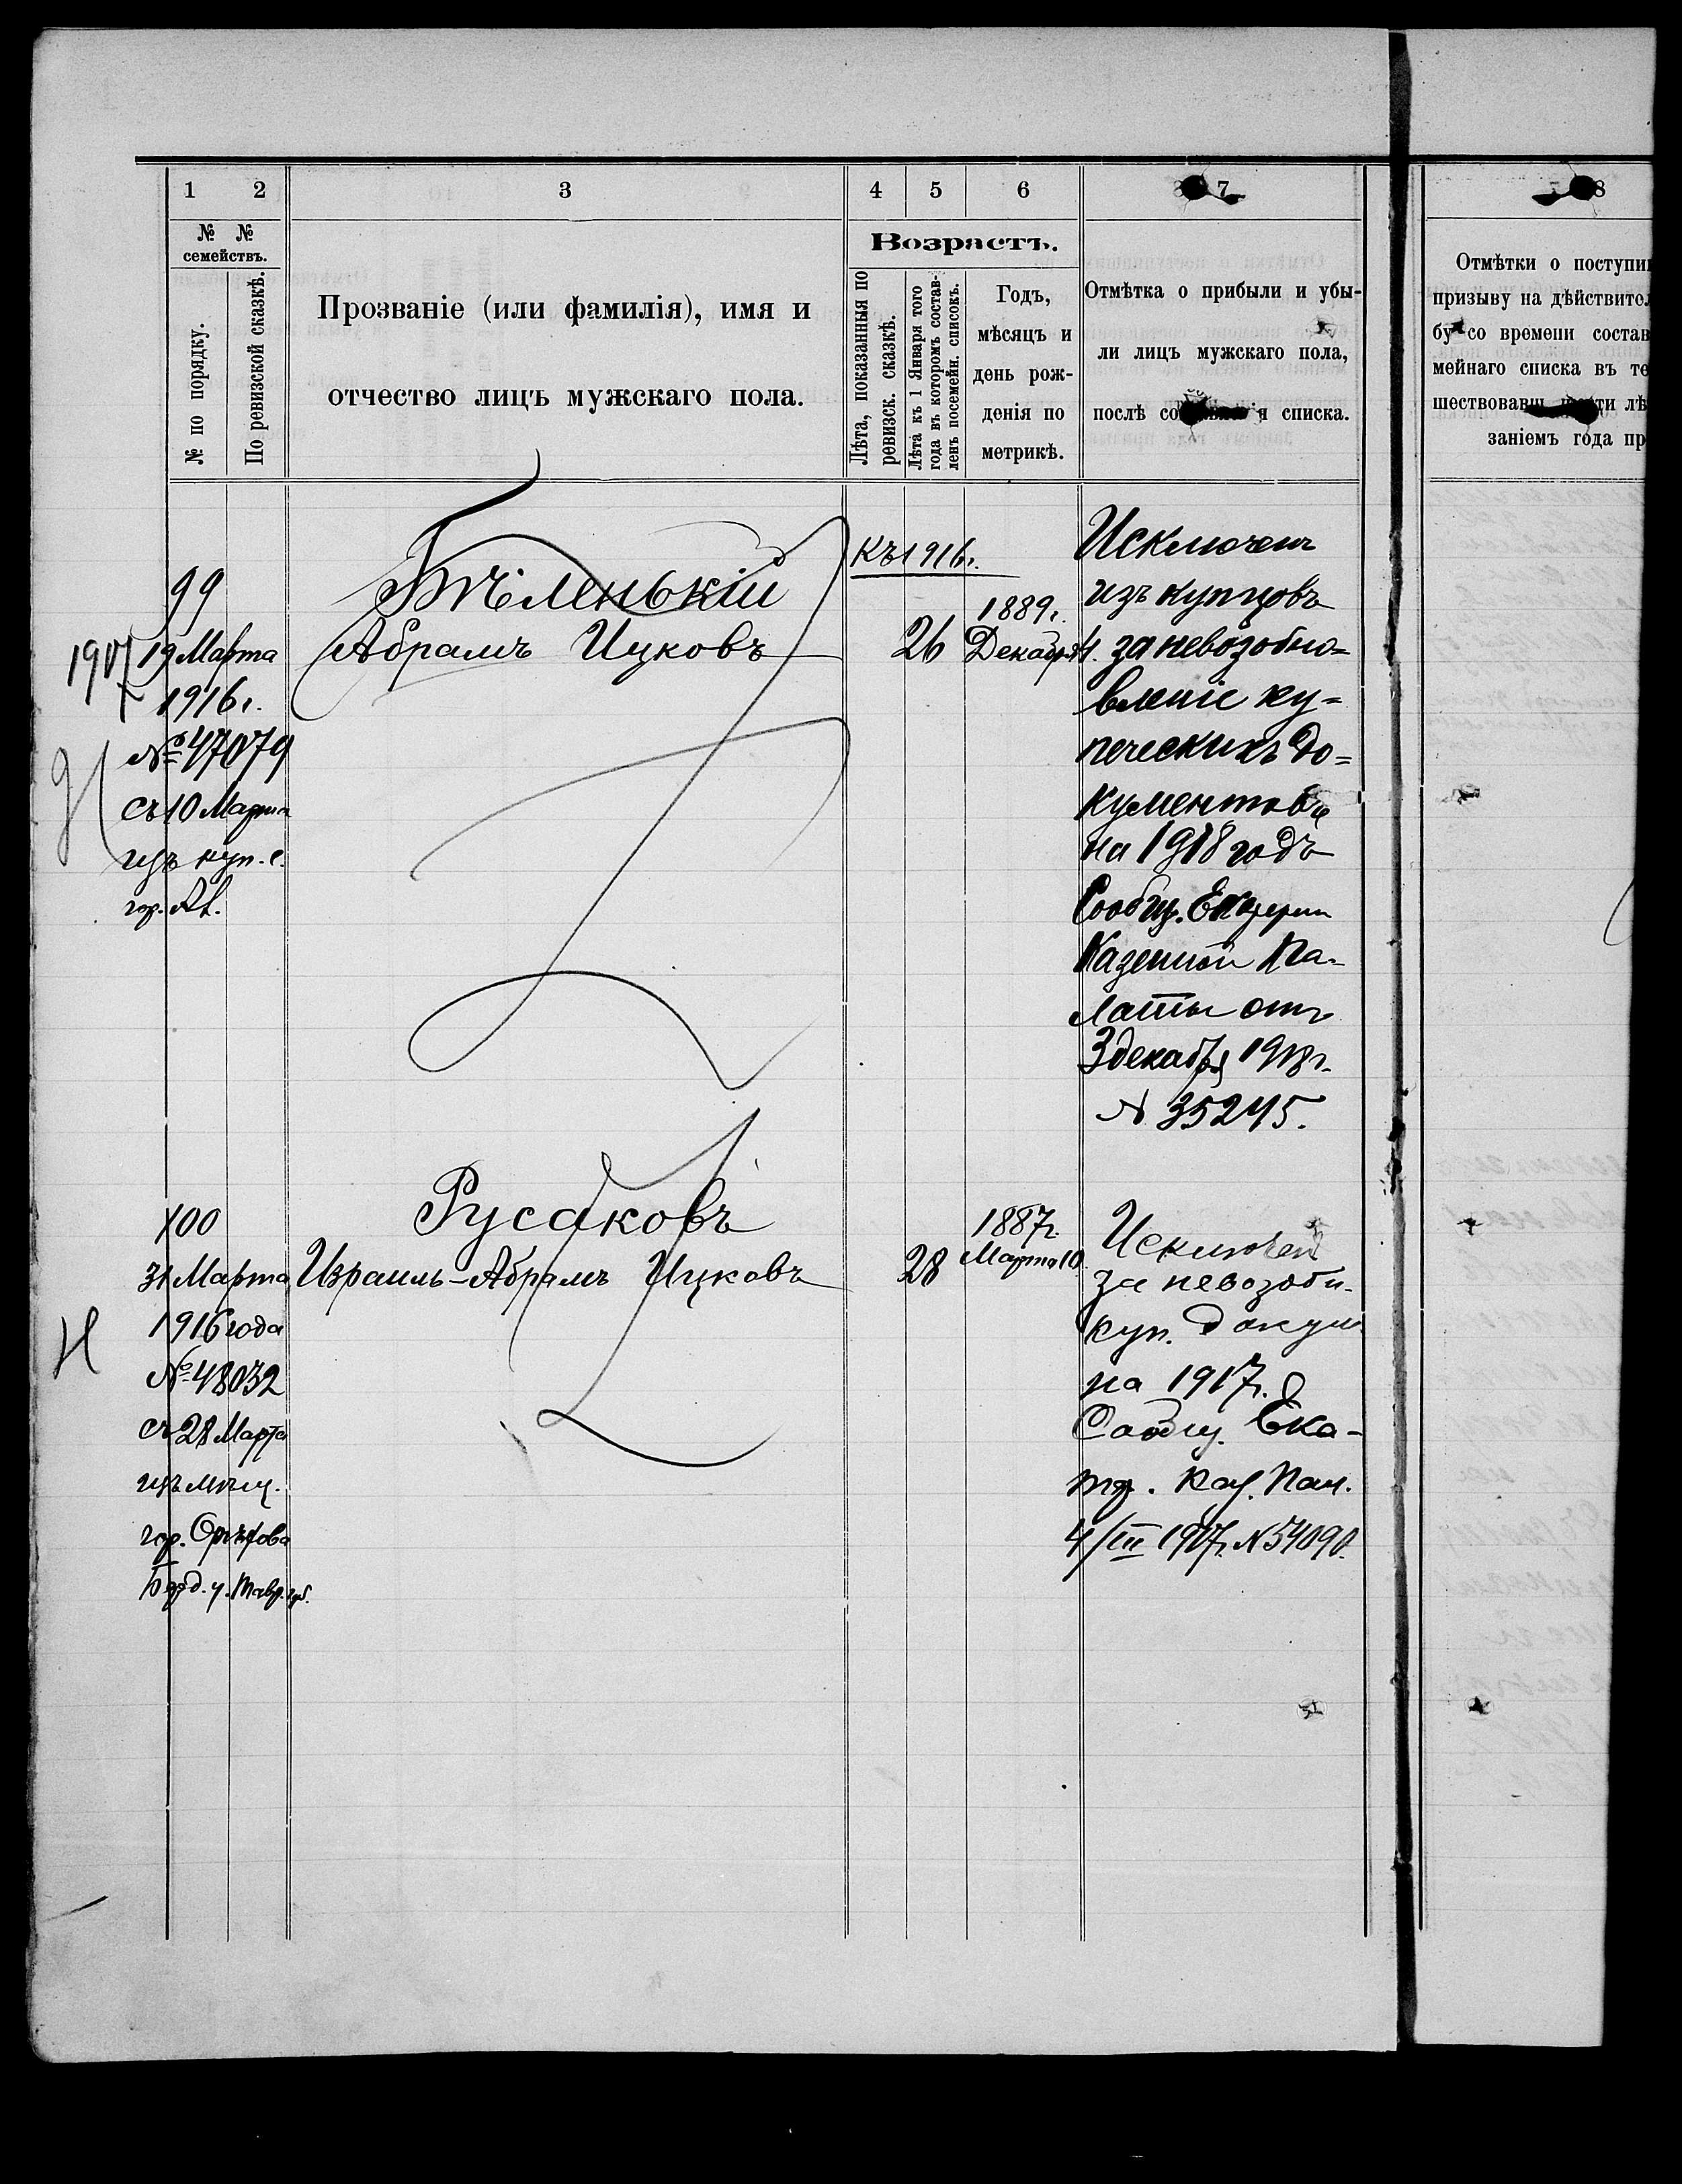 1 2 3 4 5 6 7 8
№ №
семействъ.
№ по порядку.
По ревизской сказкѣ.
Прозваніе (или фамилія), имя и
отчество лицъ мужскаго пола.
Возрастъ.
Лѣта, показанныя по
ревизск. сказкѣ.
Лѣта къ 1 Января того
года въ которомъ состав-
ленъ посемейн. списокъ.
Годъ,
мѣсяцъ и
день рож-
денія по
метрикѣ.
Отмѣтка о прибыли и убы-
ли лицъ мужскаго пола,
послѣ я списка.
Отмѣтки о поступи
призыву на дѣйствител
бу со времени состав
мейнаго списка въ те
шествовавш ти лѣ
заніемъ года пр
99
1907 19 Марта
1916 г.
№ 47079
съ 10 Марта
изъ куп. с.
гор. Ал.
Бѣленькій
Абрамъ Ицковъ
Къ 1916 г.
26
1889 г.
Декабря 4.
Исключенъ
изъ купцовъ
за невозобно=
вленіе ку=
печескихъ до=
кументовъ
на 1918 годъ
Сообщ. Екатерин
Казенной Па-
латы отъ
3 декабря 1918 г.
№ 35245.
100
31 Марта
1916 года
№ 48032
съ 28 Марта
изъ мѣщ.
гор. Орѣхова
Берд. у. Тавр. губ.
Русаковъ
Израиль-Абрамъ Ицковъ
28
1887 г.
Марта 10.
Исключен
за невозобн.
куп. докум.
на 1917 г.
Сообщ. Ека-
тер. Каз. Пал.
4/III 1917 г. № 54090.